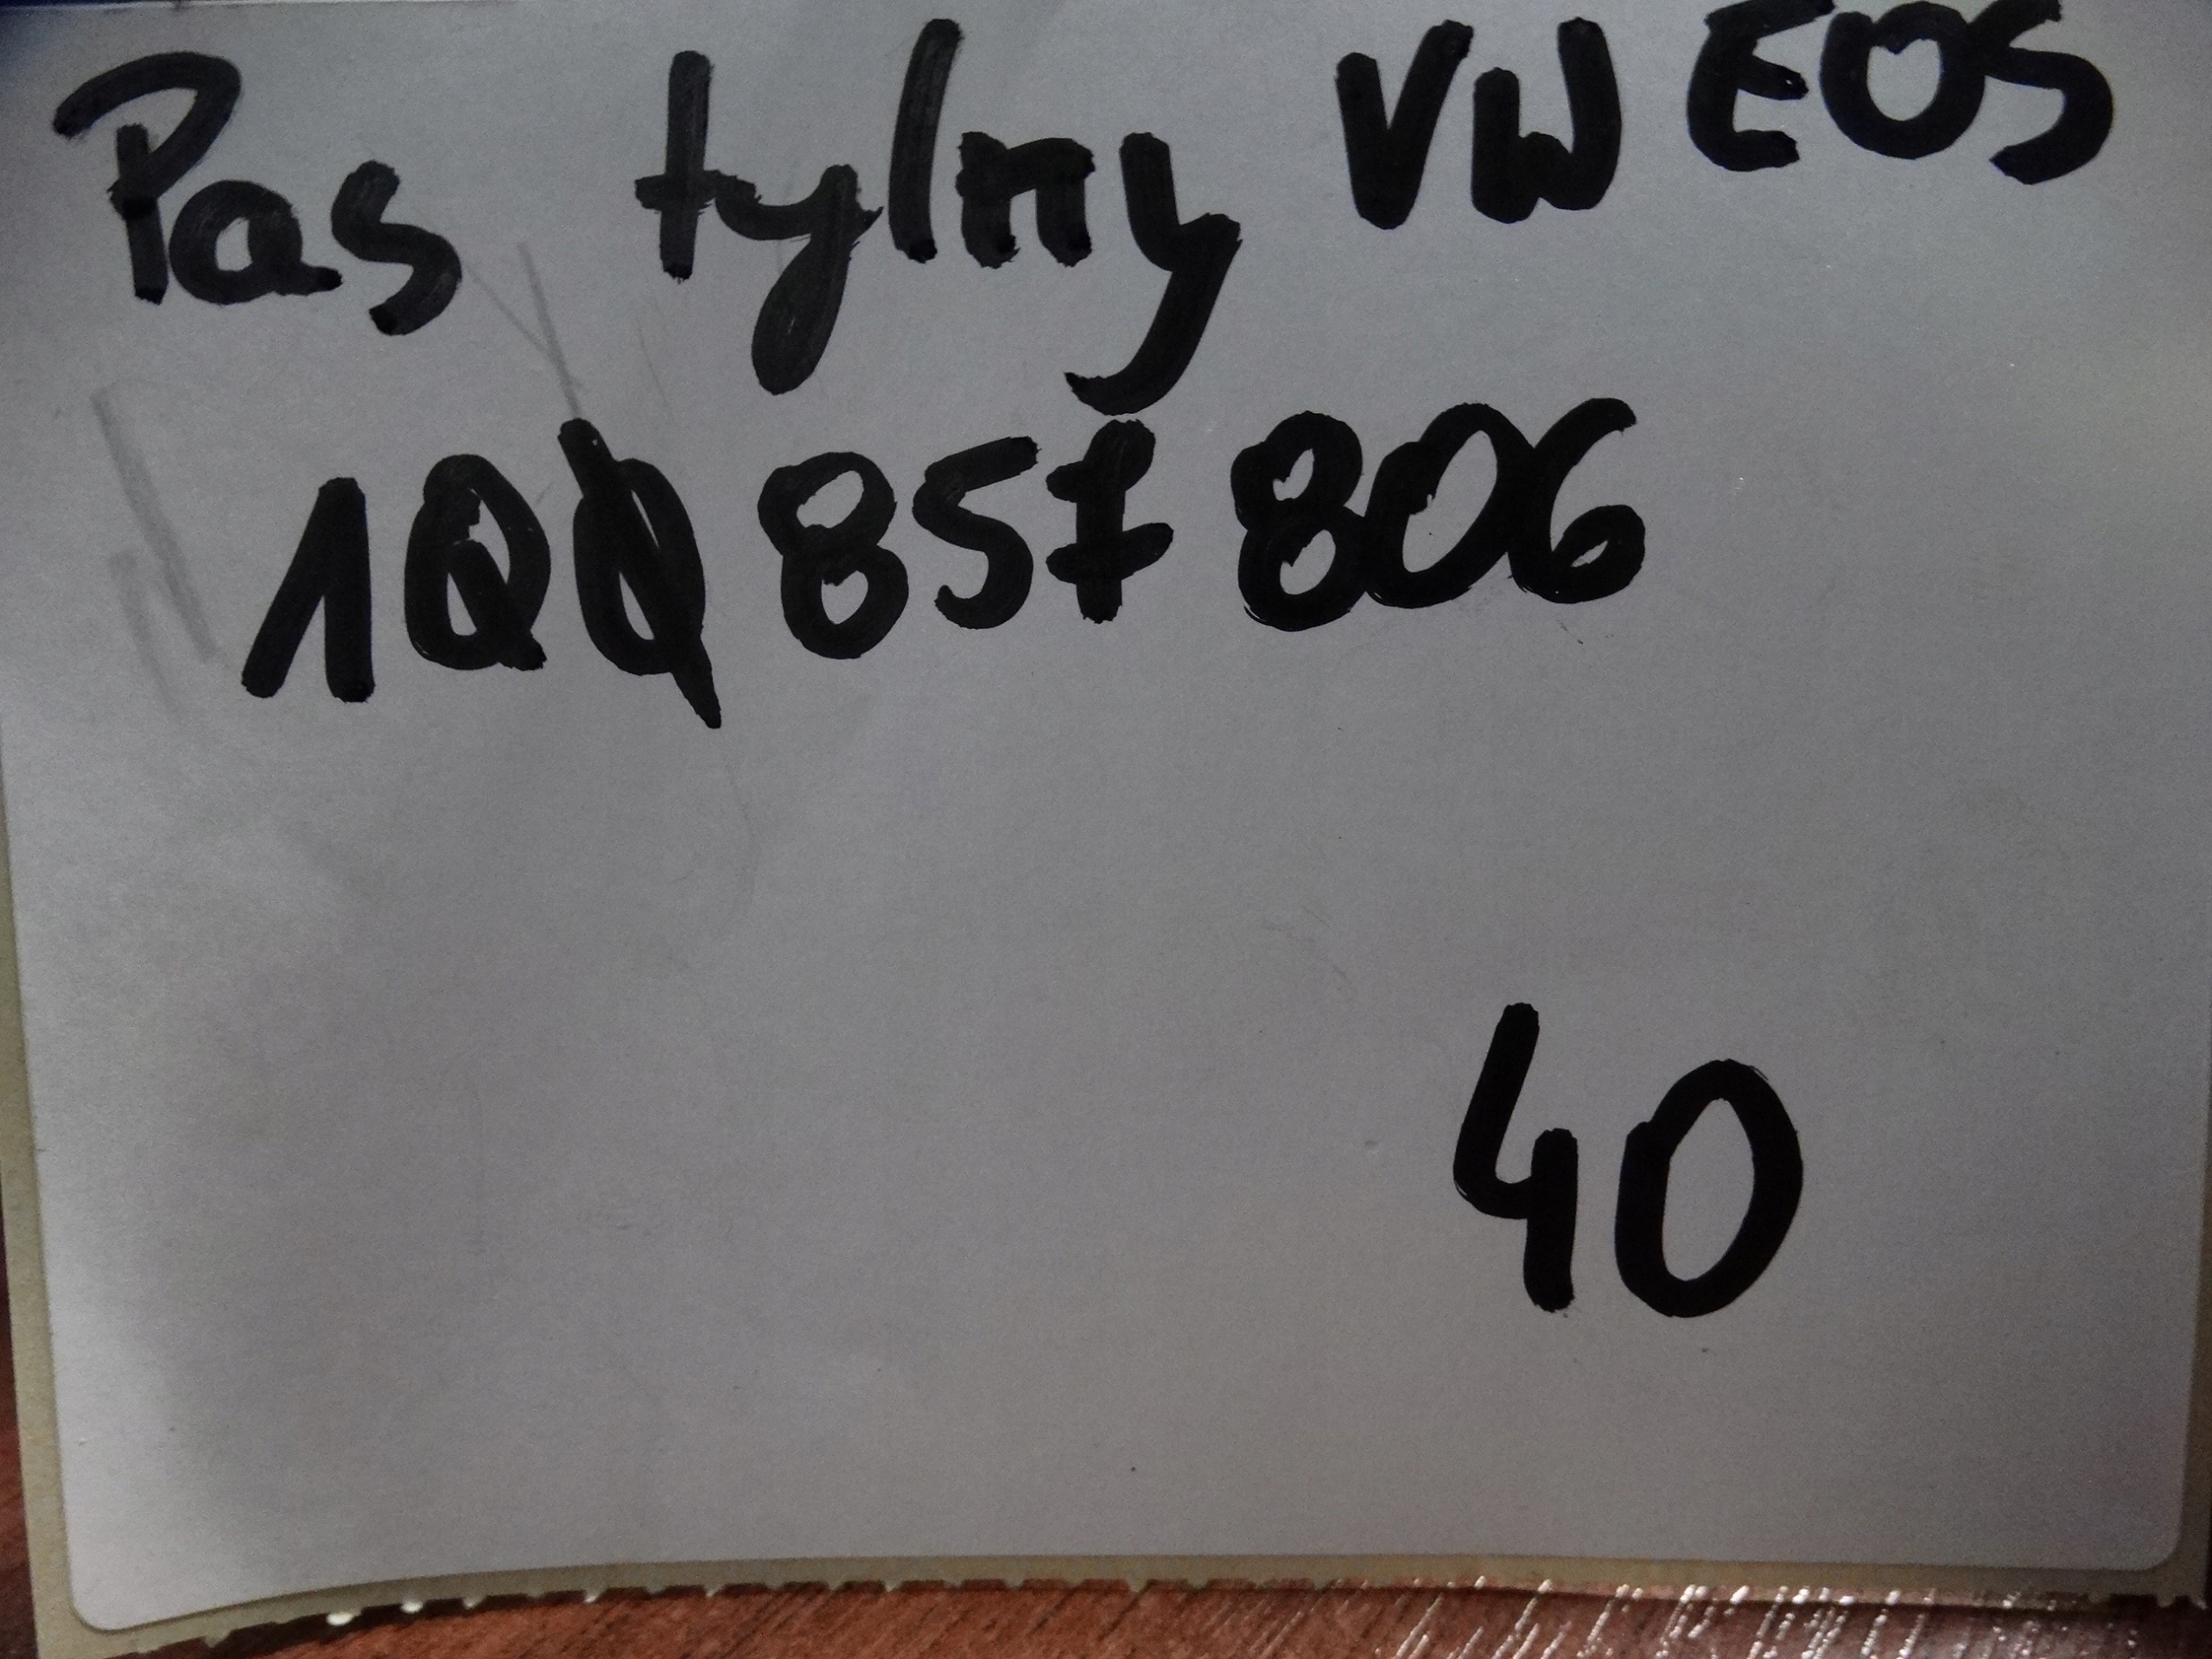 Pas tylny VW EOS
1QØ 857 806
40